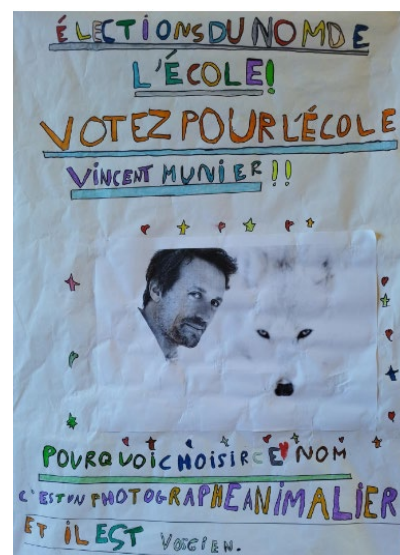 ÉLECTIONS DU NOM DE
L'ÉCOLE!
VOTEZ POUR L'ÉCOLE
VINCENT MUNIER !!
POURQUOI CHOISIR CE NOM
C'EST UN PHOTOGRAPHE ANIMALIER
ET IL EST